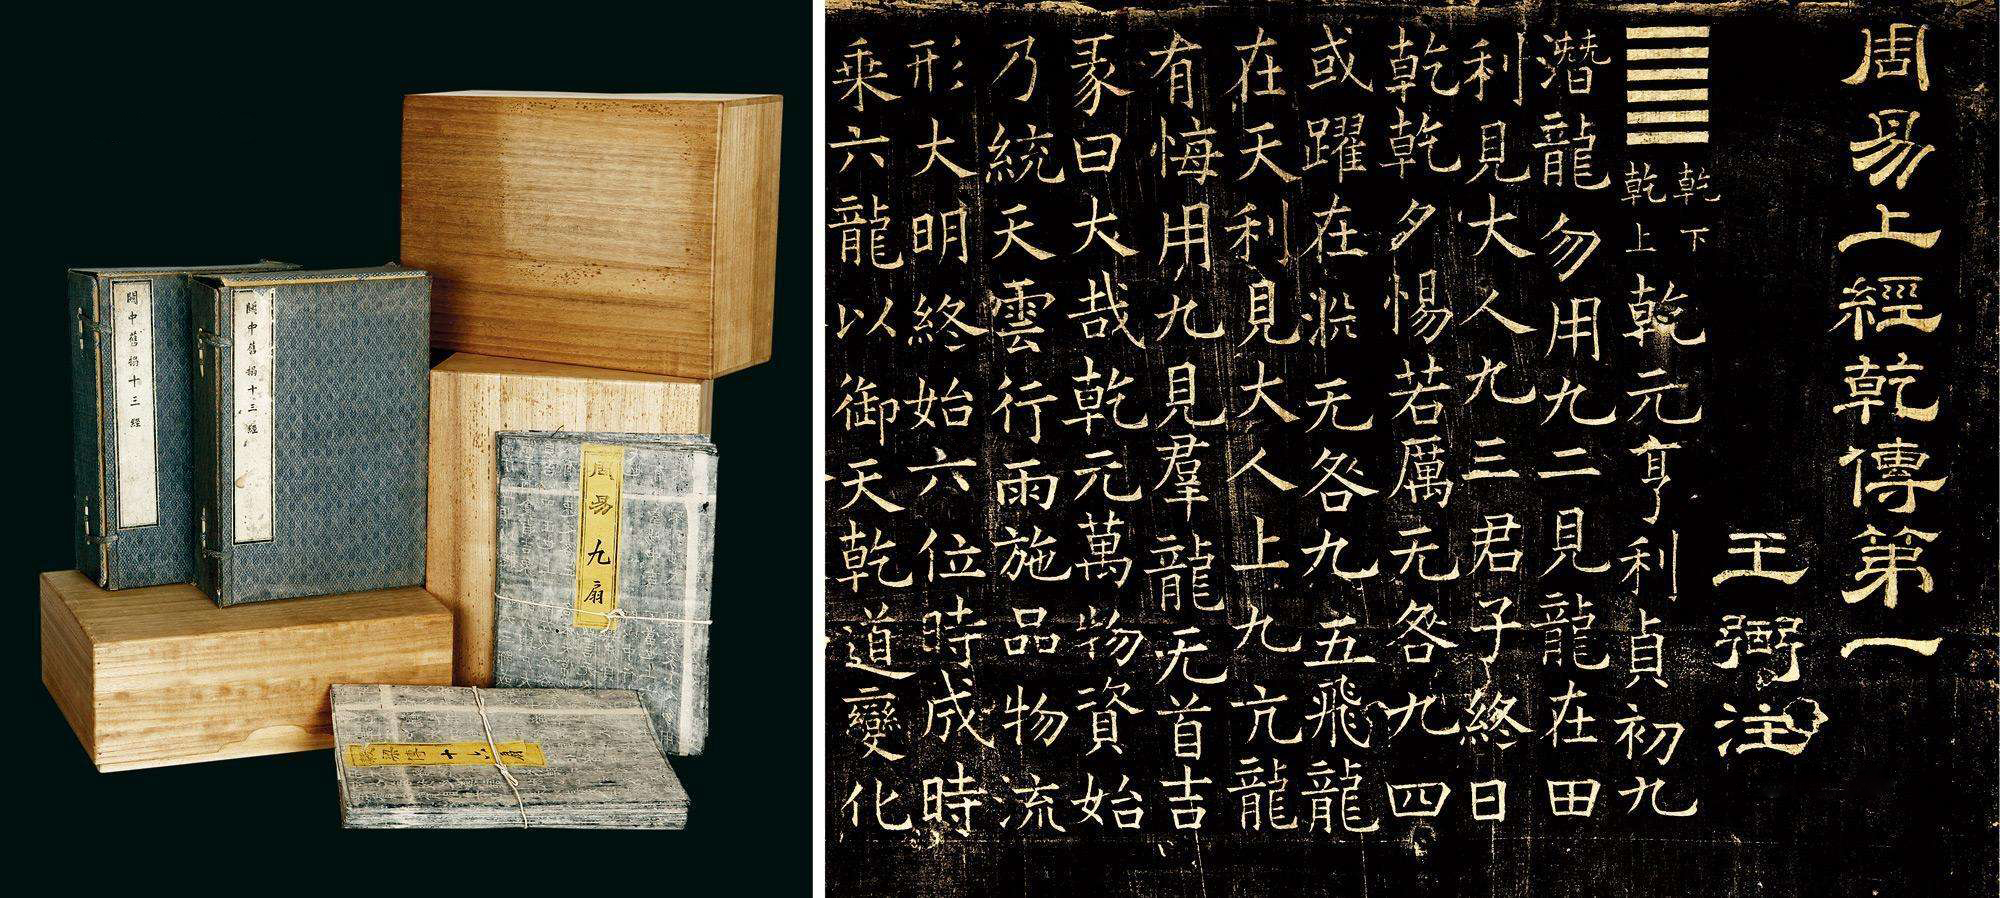 關中舊搨十三經
關中舊搨十三經
周易九扇
十六扇
周易上經乾傳第一
王弼注
䷀ 乾下乾上 乾元亨利貞初九
潛龍勿用九二見龍在田
利見大人九三君子終日
乾乾夕惕若厲无咎九四
或躍在淵无咎九五飛龍
在天利見大人上九亢龍
有悔用九見羣龍无首吉
彖曰大哉乾元萬物資始
乃統天雲行雨施品物流
形大明終始六位時成時
乗六龍以御天乾道變化